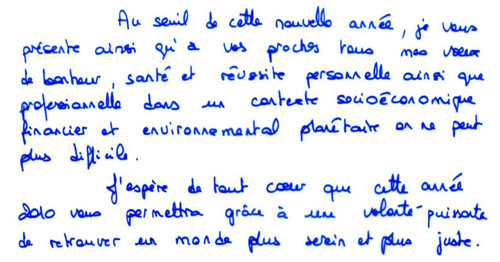 Au seuil de cette nouvelle année, je vous
présente ainsi qu'à vos proches tous mes vœux
de bonheur, santé et réussite personnelle ainsi que
professionnelle dans un contexte socioéconomique
financier et environnemental planétaire on ne peut
plus difficile.
J'espère de tout cœur que cette année
2010 vous permettra grâce à une volonté puissante
de retrouver un monde plus serein et plus juste.